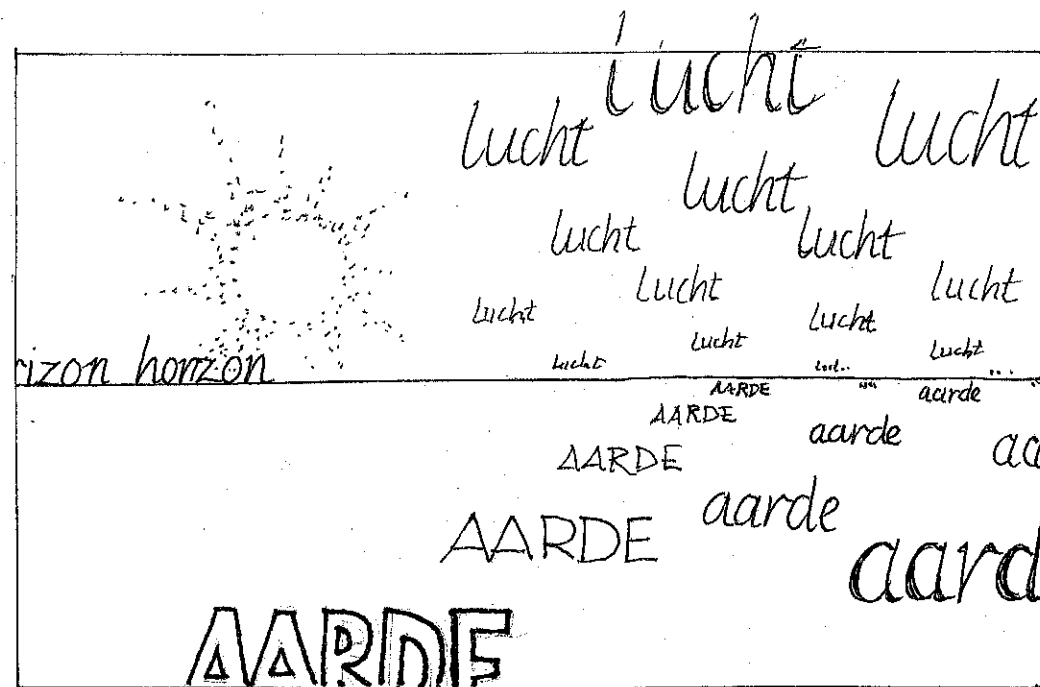 lucht
lucht
lucht
lucht
lucht
lucht
lucht
lucht
lucht
lucht
lucht
lucht
lucht
rizon horizon
AARDE
aarde
AARDE
aarde
aa
AARDE
aarde
AARDE
aard
AARDE